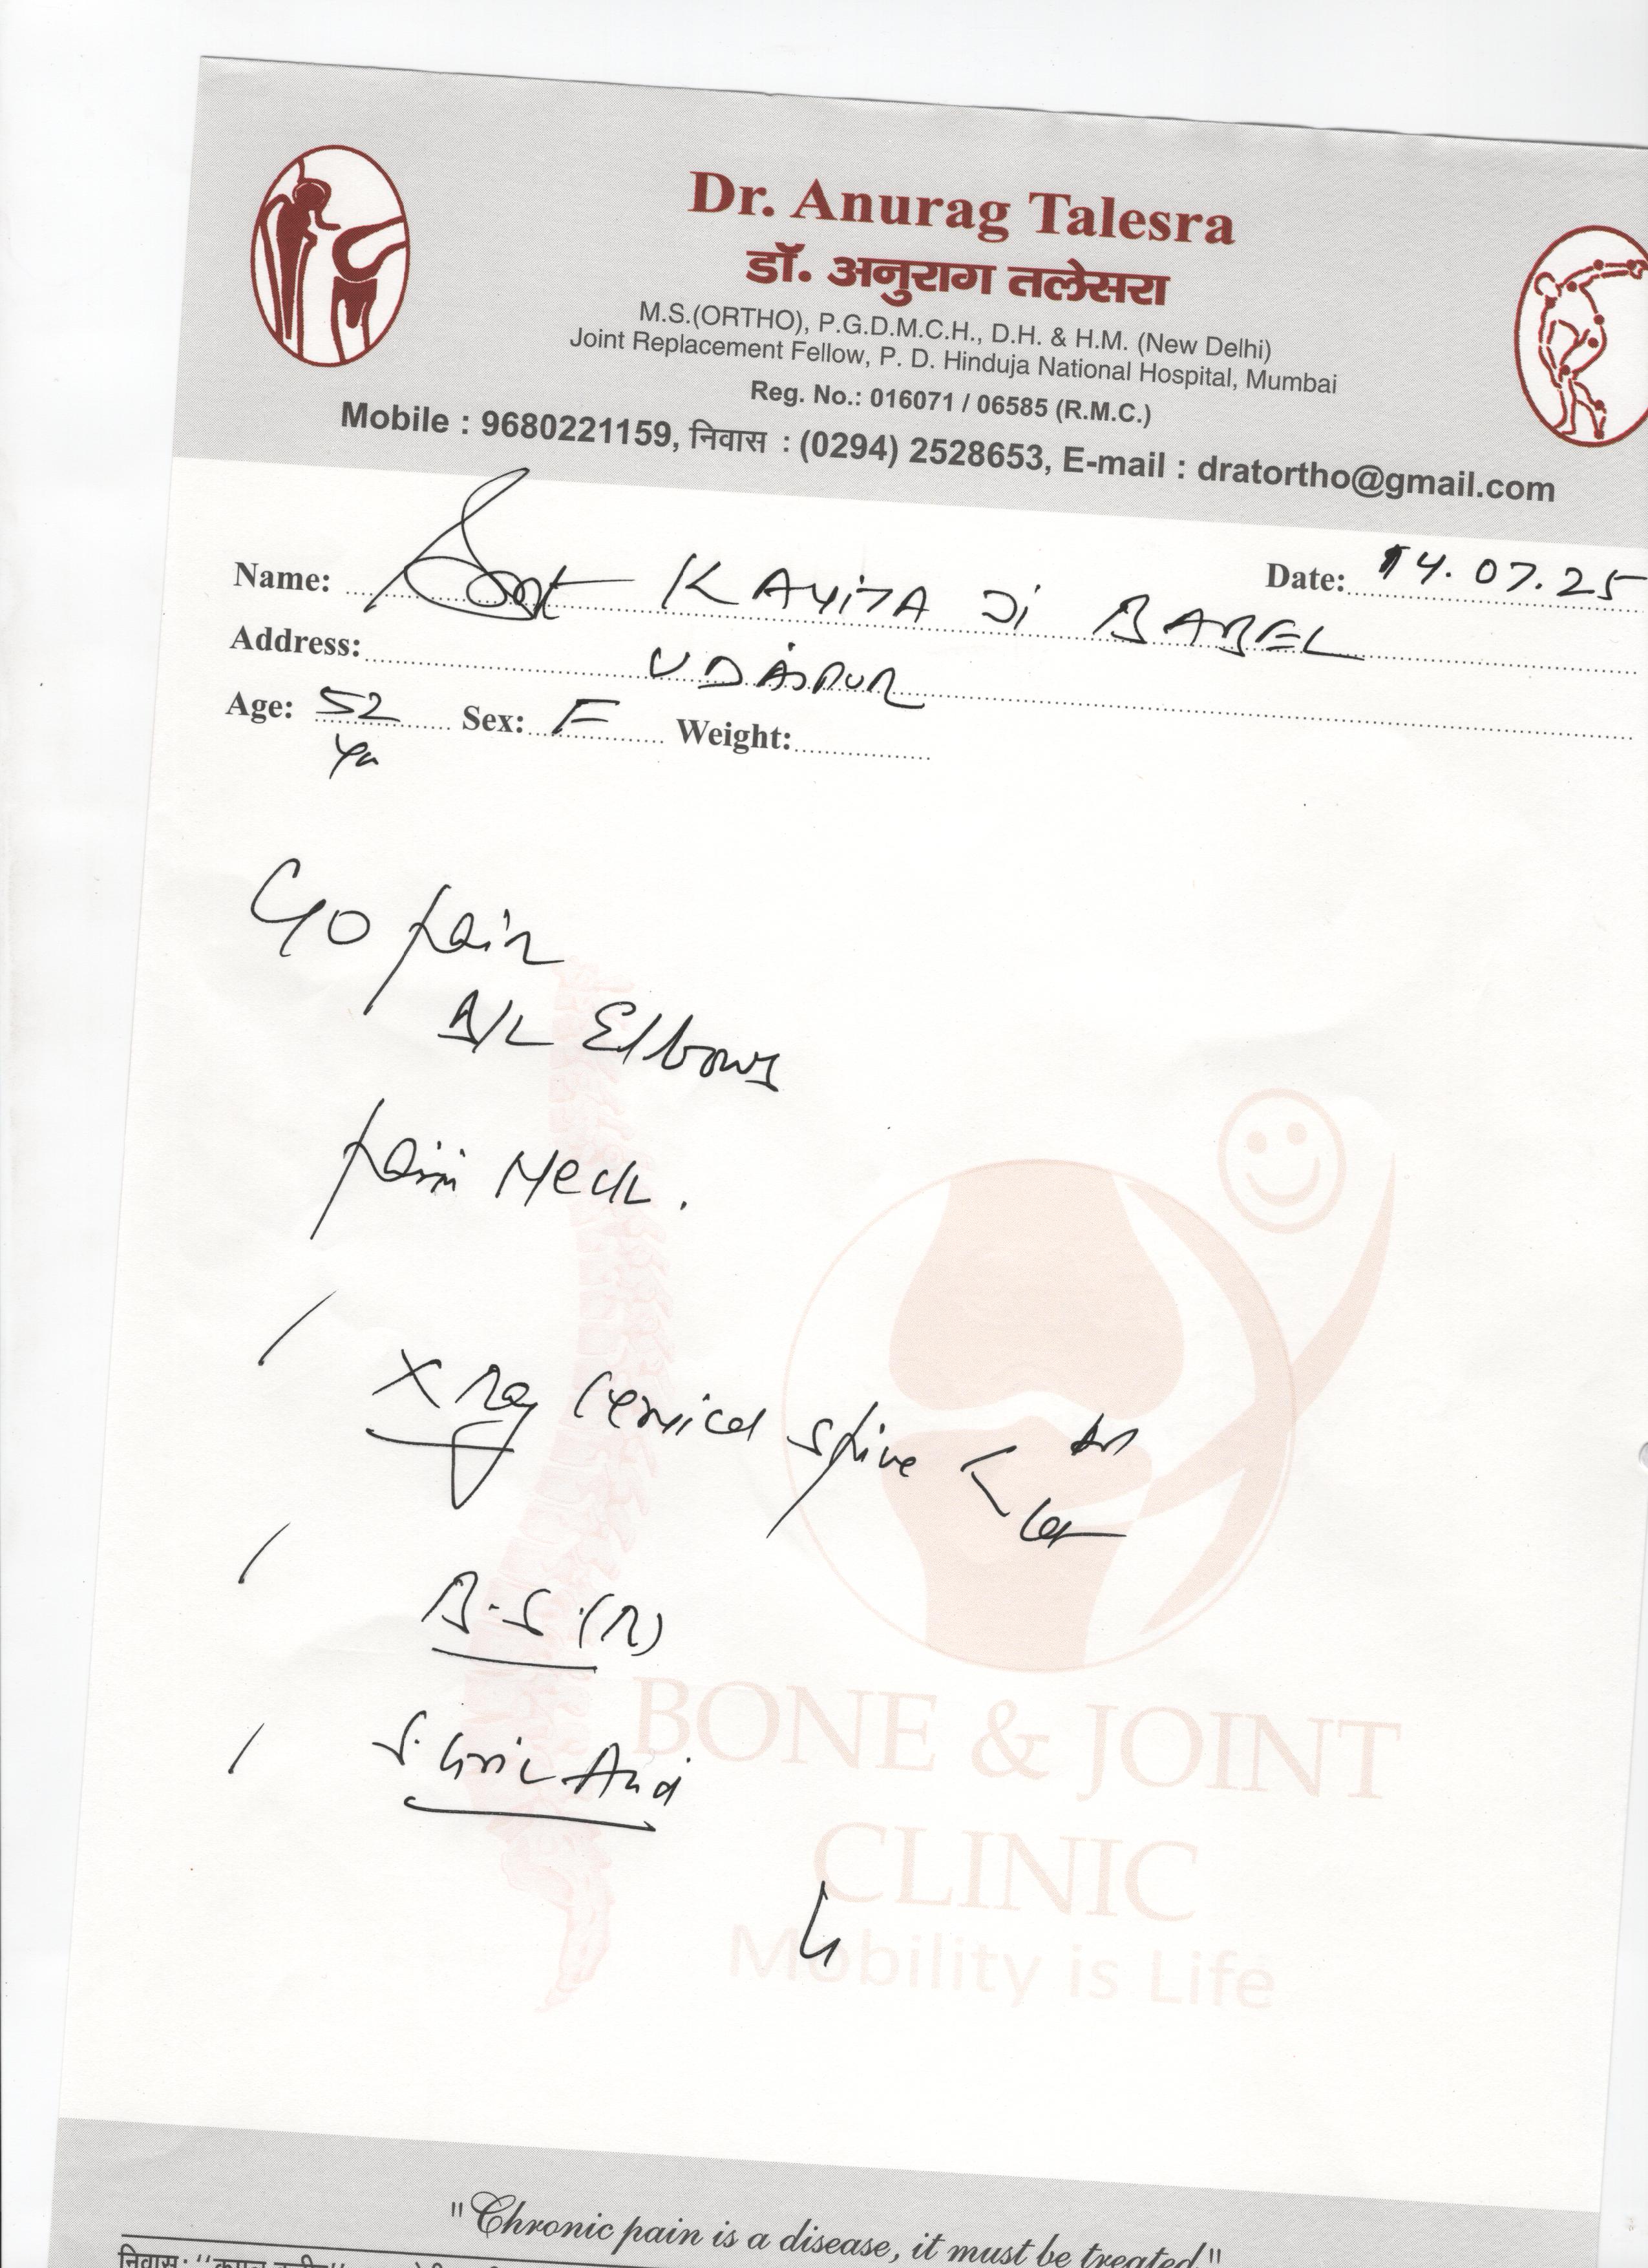 Dr. Anurag Talesra
डॉ. अनुराग तलेसरा
M.S.(ORTHO), P.G.D.M.C.H., D.H. & H.M. (New Delhi)
Joint Replacement Fellow, P. D. Hinduja National Hospital, Mumbai
Reg. No.: 016071 / 06585 (R.M.C.)
Mobile : 9680221159, निवास : (0294) 2528653, E-mail : dratortho@gmail.com
Name: Smt KAVITA Ji BABEL Date: 14.07.25
Address: UDAIPUR
Age: 52 Sex: F Weight:
Yr
C/O pain
B/L Elbows
pain Neck.
X Ray Cervical Spine < AP
Lat
B.S.(R)
S. Uric Acid
BONE & JOINT
CLINIC
Mobility is Life
"Chronic pain is a disease, it must be treated"
निवास: